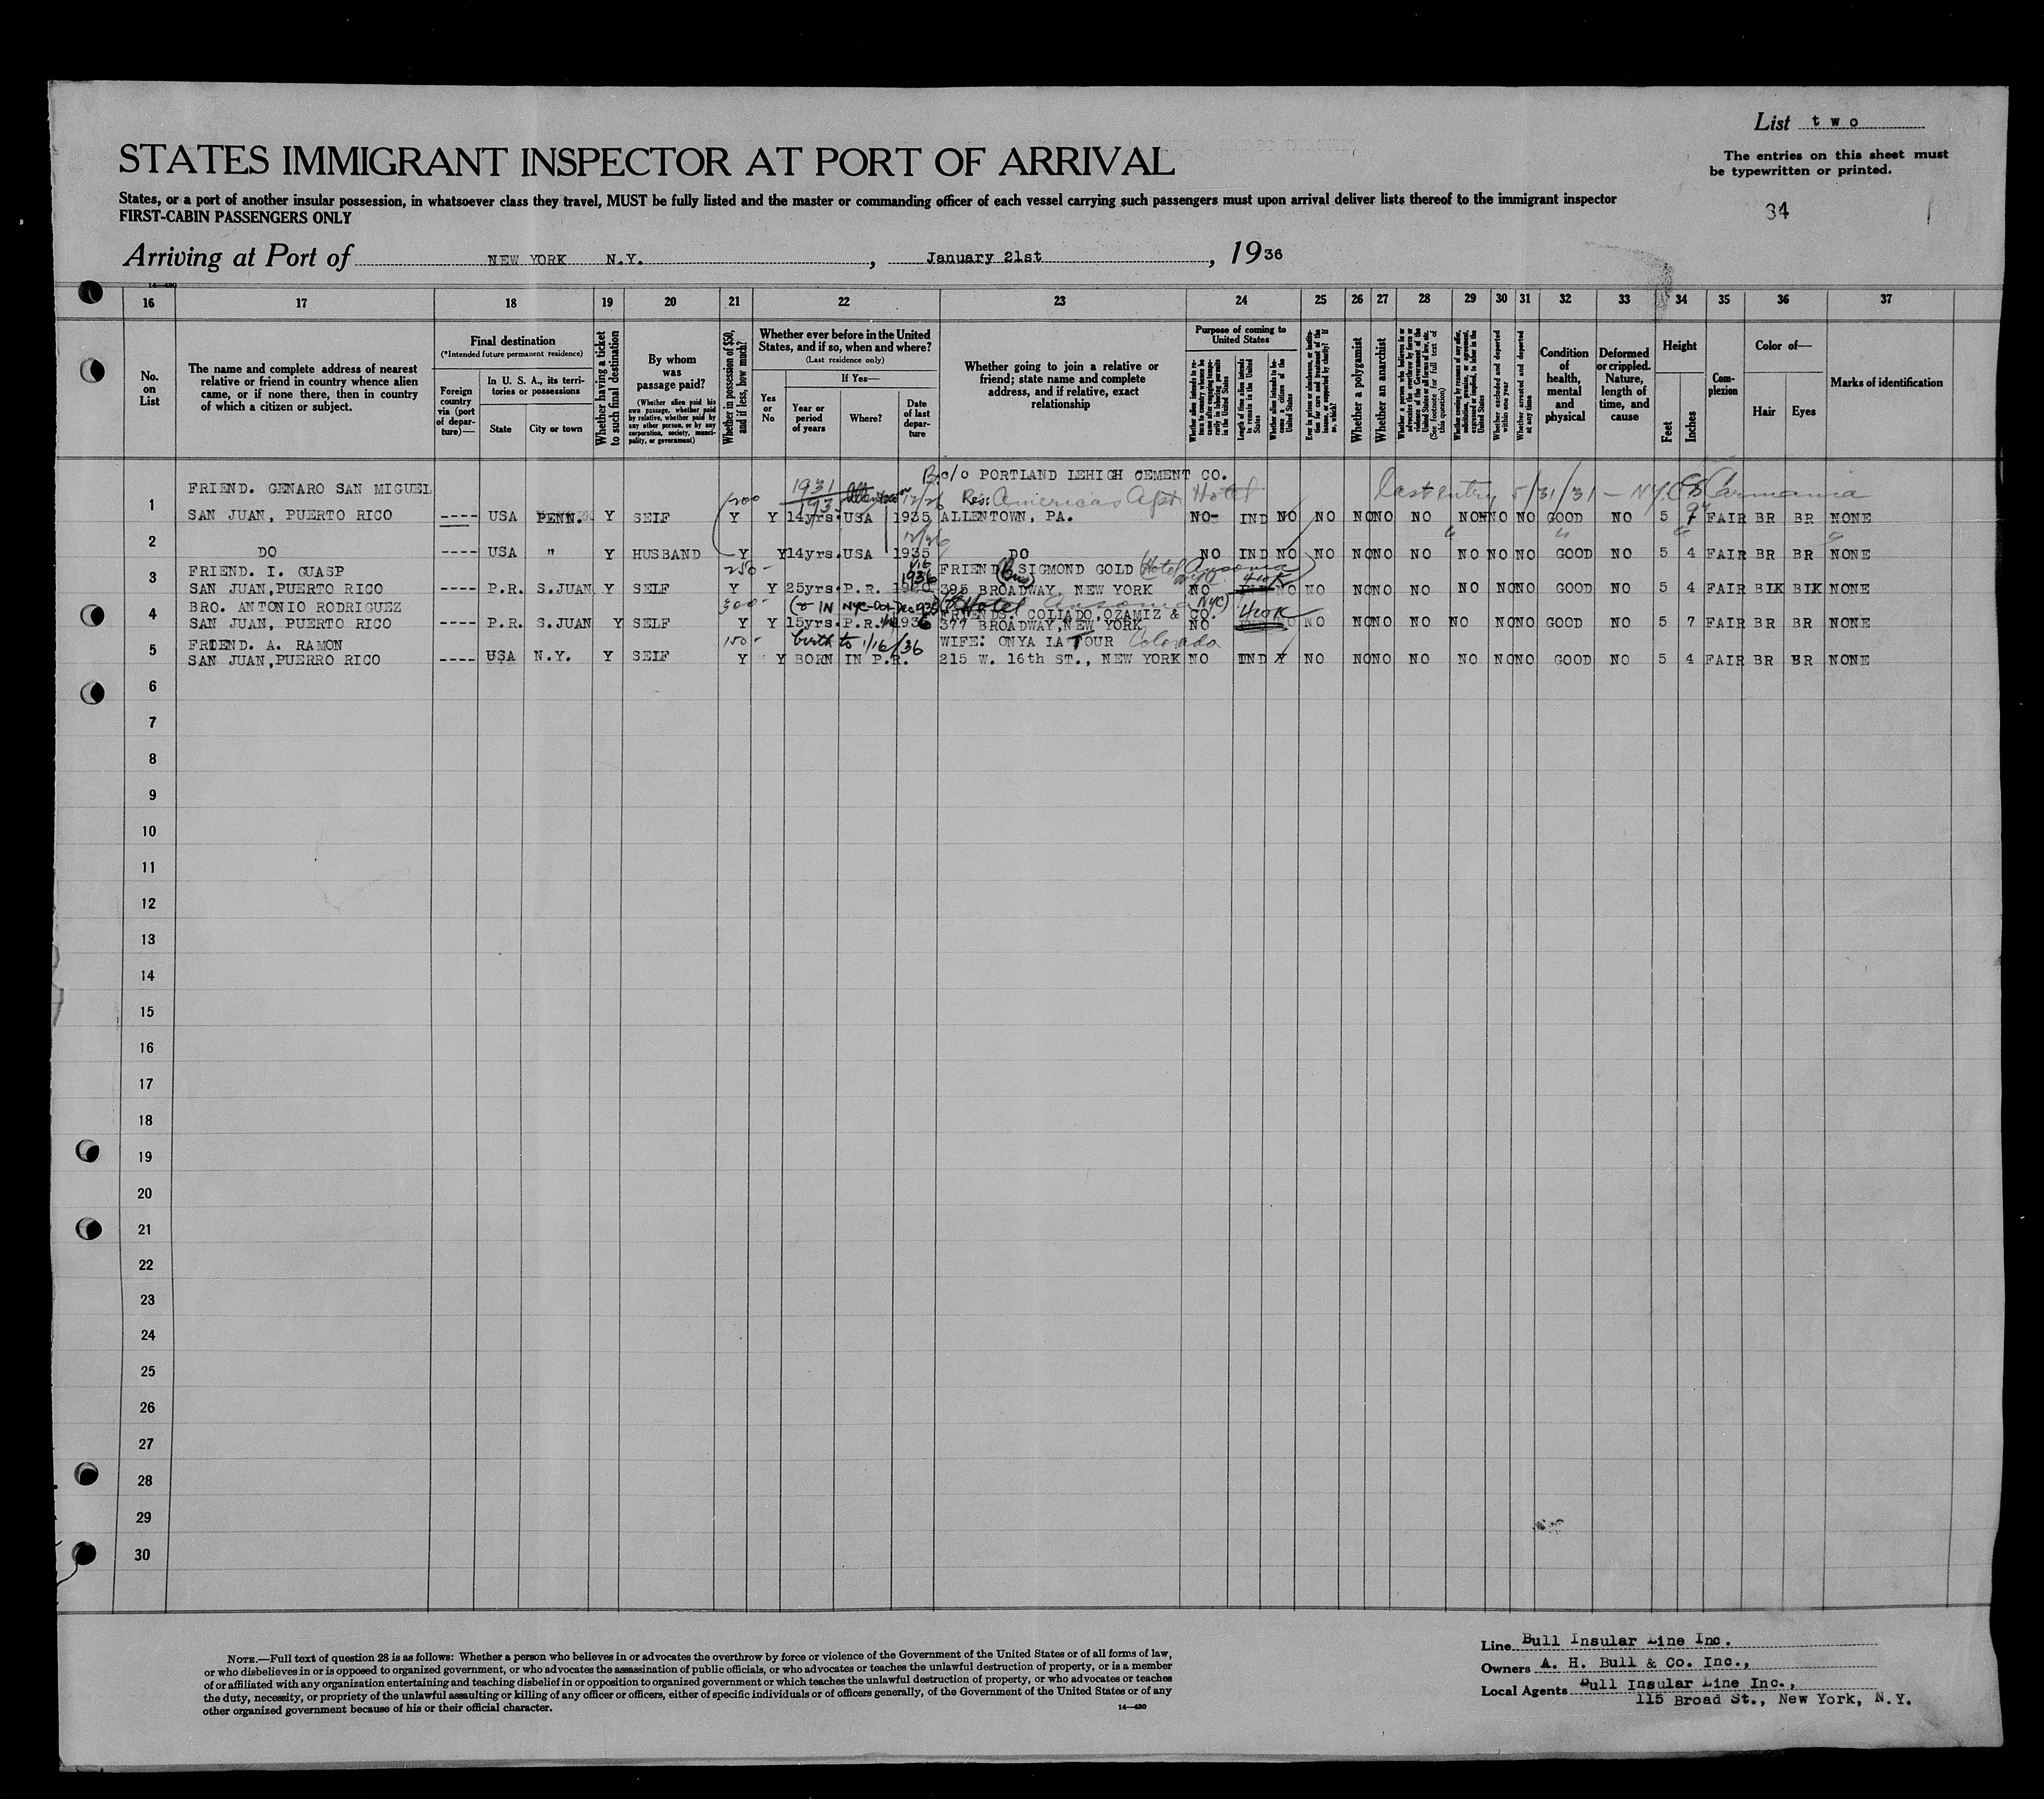 List two
STATES IMMIGRANT INSPECTOR AT PORT OF ARRIVAL
The entries on this sheet must
be typewritten or printed.
States, or a port of another insular possession, in whatsoever class they travel, MUST be fully listed and the master or commanding officer of each vessel carrying such passengers must upon arrival deliver lists thereof to the immigrant inspector
FIRST-CABIN PASSENGERS ONLY
34
Arriving at Port of NEW YORK N.Y., January 21st, 1936
14—430
16 17 18 19 20 21 22 23 24 25 26 27 28 29 30 31 32 33 34 35 36 37
No. on List
The name and complete address of nearest relative or friend in country whence alien came, or if none there, then in country of which a citizen or subject.
Final destination
(*Intended future permanent residence)
Foreign country via (port of departure)—
In U. S. A., its territories or possessions
State
City or town
Whether having a ticket to such final destination
By whom was passage paid?
(Whether alien paid his own passage, whether paid by relative, whether paid by any other person, or by any corporation, society, municipality, or government)
Whether in possession of $50, and if less, how much?
Whether ever before in the United States, and if so, when and where?
(Last residence only)
Yes or No
If Yes—
Year or period of years
Where?
Date of last departure
Whether going to join a relative or friend; state name and complete address, and if relative, exact relationship
Purpose of coming to United States
Length of time alien intends to remain in the United States
Whether alien intends to become a citizen of the United States
Whether a polygamist
Whether an anarchist
Whether excluded and deported within one year
Whether arrested and deported at any time
Condition of health, mental and physical
Deformed or crippled. Nature, length of time, and cause
Height
Feet
Inches
Complexion
Color of—
Hair
Eyes
Marks of identification
c/o PORTLAND LEHIGH CEMENT CO.
FRIEND. GENARO SAN MIGUEL 1931 Res: Americas Apt. Hotel Last entry 5/31/31 – NYC SS Carmania
1 SAN JUAN, PUERTO RICO ---- USA PENN. Y SELF Y Y 14yrs. USA 1935 ALLENTOWN, PA. NO IND NO NO NO NO NO NO NO NO GOOD NO 5 FAIR BR BR NONE
12/26
2 DO ---- USA " Y HUSBAND Y Y 14yrs. USA 1935 DO NO IND NO NO NO NO NO NO NO NO GOOD NO 5 4 FAIR BR BR NONE
FRIEND. I. GUASP 250- 1936 FRIEND SIGMOND GOLD Hotel Ansonia
3 SAN JUAN, PUERTO RICO ---- P.R. S.JUAN Y SELF Y Y 25yrs. P.R. 395 BROADWAY, NEW YORK NO NO NO NO NO NO NO NO NO GOOD NO 5 4 FAIR BIK BIK NONE
BRO. ANTONIO RODRIGUEZ 300- Hotel Ansonia NYC) FRIENDS. COLIADO, OZAMIZ & CO.
4 SAN JUAN, PUERTO RICO ---- P.R. S.JUAN Y SELF Y Y 15yrs. P.R. 1936 377 BROADWAY, NEW YORK NO NO NO NO NO NO NO NO NO GOOD NO 5 7 FAIR BR BR NONE
FRIEND. A. RAMON 150- birth to 1/16/36 WIFE: ONYA LA TOUR Colorado
5 SAN JUAN, PUERRO RICO ---- USA N.Y. Y SELF Y Y BORN IN P.R. 215 W. 16th ST., NEW YORK NO IND NO NO NO NO NO NO NO GOOD NO 5 4 FAIR BR BR NONE
6
7
8
9
10
11
12
13
14
15
16
17
18
19
20
21
22
23
24
25
26
27
28
29
30
NOTE.—Full text of question 28 is as follows: Whether a person who believes in or advocates the overthrow by force or violence of the Government of the United States or of all forms of law,
or who disbelieves in or is opposed to organized government, or who advocates the assassination of public officials, or who advocates or teaches the unlawful destruction of property, or is a member
of or affiliated with any organization entertaining and teaching disbelief in or opposition to organized government or which teaches the unlawful destruction of property, or who advocates or teaches
the duty, necessity, or propriety of the unlawful assaulting or killing of any officer or officers, either of specific individuals or of officers generally, of the Government of the United States or of any
other organized government because of his or their official character.
14—430
Line Bull Insular Line Inc.
Owners A. H. Bull & Co. Inc.,
Local Agents Bull Insular Line Inc.,
115 Broad St., New York, N.Y.